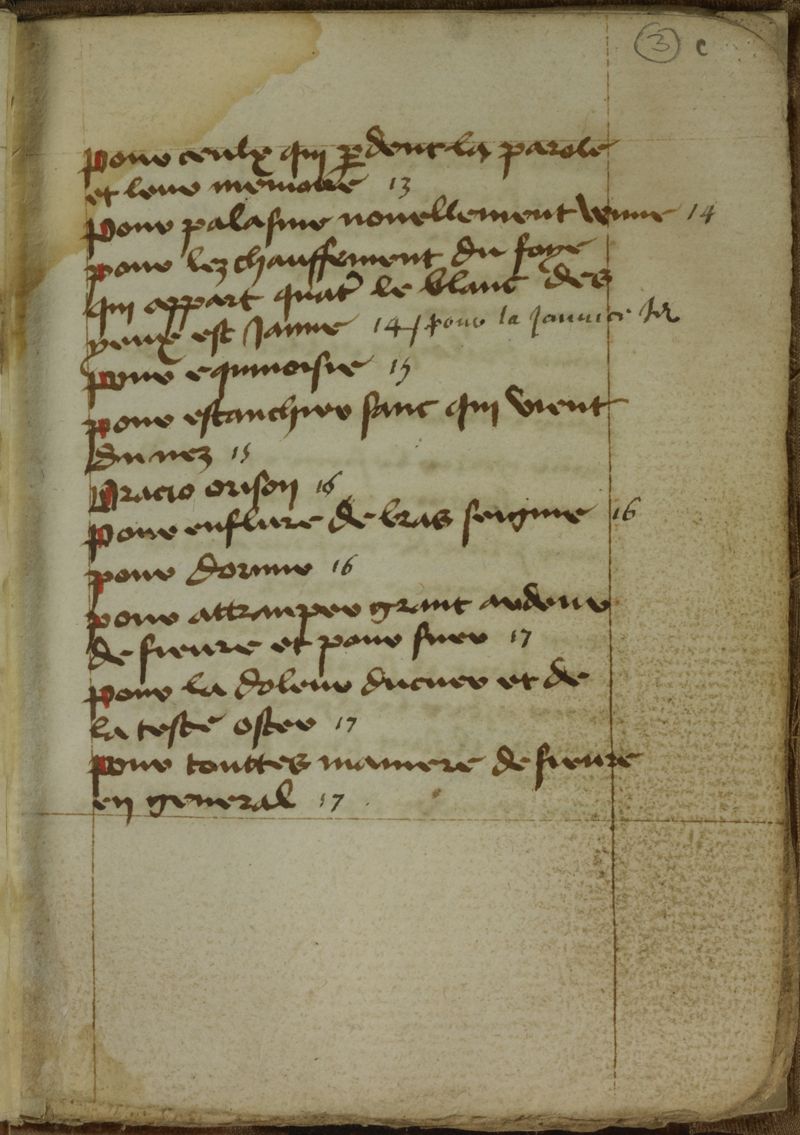 3 c
Pour ceulx qui perdent la parole
et leur memoire 13
Pour palasine nouellement venue 14
pour lezchauffement du foye
qui appart quant le blanc des
yeux est Jaune 14 / pour la Jaunice
Pour equinoisie 15
pour estanchier sanc qui vient
du nez 15
Oracio orison 16
Pour enflure de bras seignie 16
pour dormir 16
pour attramper grant ardeur
de fieure et pour suer 17
pour la doleur ducuer et de
la teste oster 17
Pour touttes maniere de fieure
en general 17